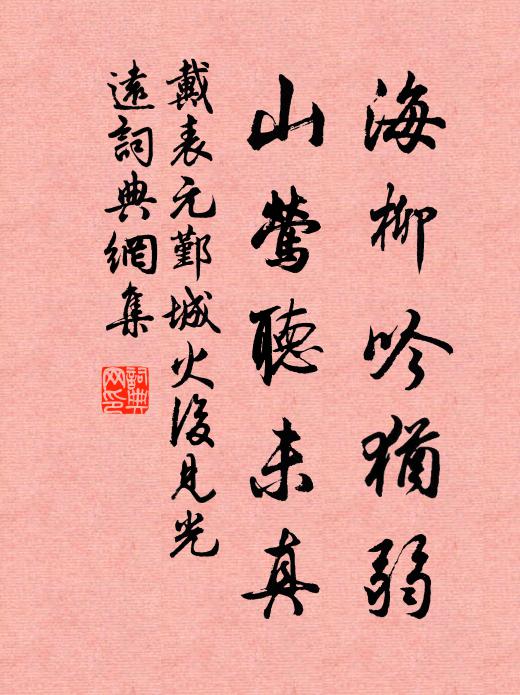 海柳吟猶弱
山鶯聽未真
戴表元鄞城火後見光
遠詞典網集
詞典
网印